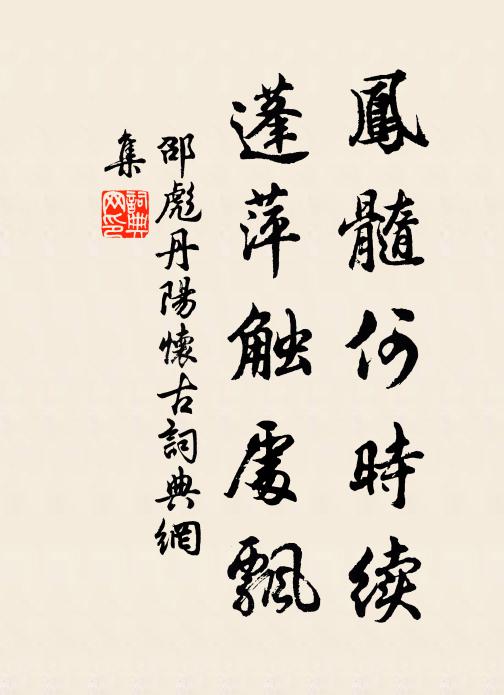 鳳髓何時续
蓬萍触處飄
邵彪丹陽懷古詞典網
集
詞典網印